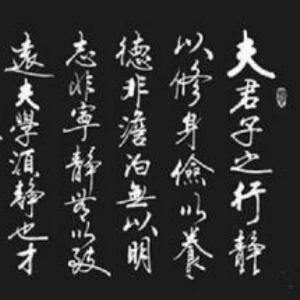 夫君子之行靜
以修身儉以養
德非澹泊無以明
志非寧靜無以致
遠夫學須靜也才